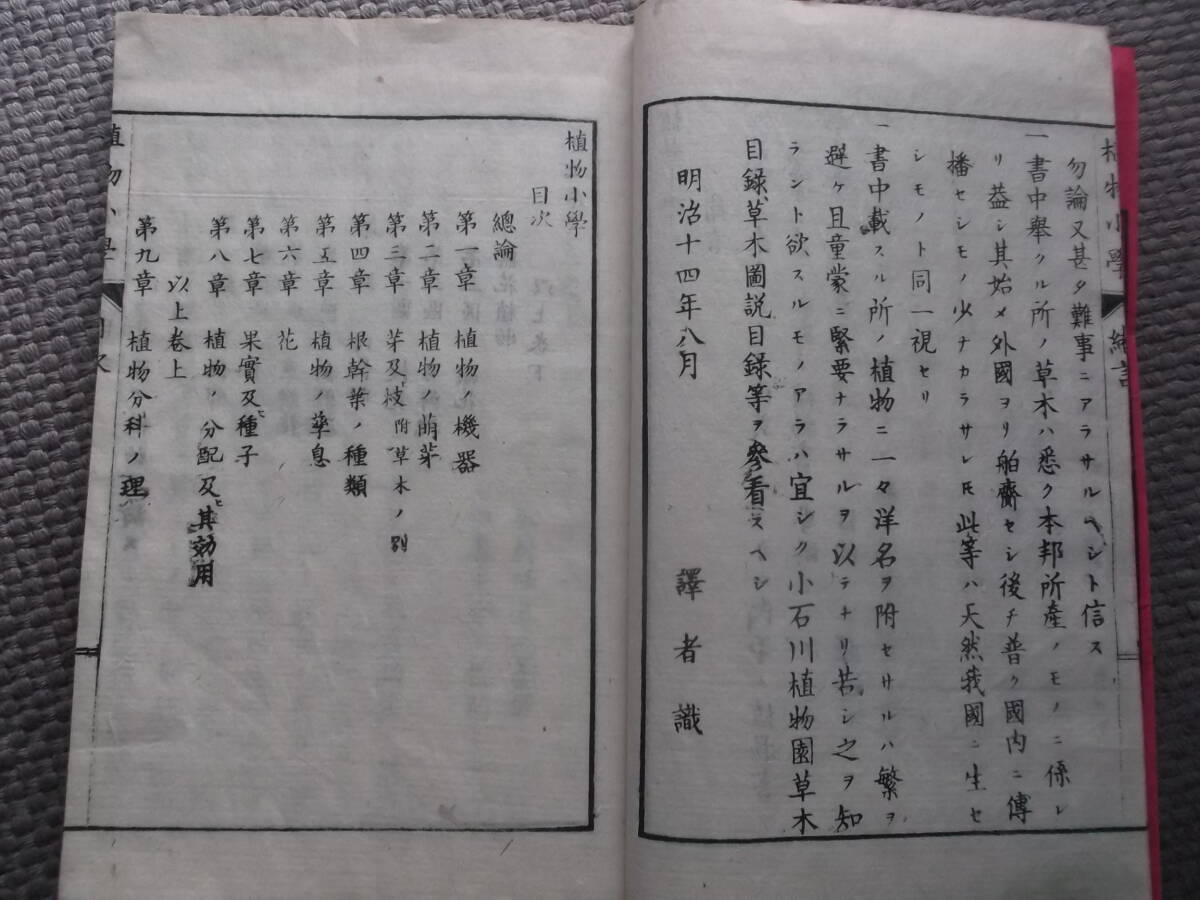 植物小學 緒言
勿論又甚タ難事ニアラサルヘシト信ス
一書中舉クル所ノ草木ハ悉ク本邦所產ノモノニ係レ
リ葢シ其始メ外國ヨリ舶齎セシ後チ普ク國内ニ傳
播セシモノ少ナカラサレ𪜈此等ハ天然我國ニ生セ
シモノト同一視セリ
一書中載スル所ノ植物ニ一々洋名ヲ附セサルハ繁ヲ
避ケ且童蒙ニ緊要ナラサルヲ以テナリ若シ之ヲ知
ラント欲スルモノアラハ宜シク小石川植物園草木
目録草木圖説目録等ヲ參看スヘシ
明治十四年八月 譯者識
植物小學
目次
總論
第一章 植物ノ機器
第二章 植物ノ萌芽
第三章 芽及ヒ枝 附草木ノ別
第四章 根幹葉ノ種類
第五章 植物ノ孳息
第六章 花
第七章 果實及ヒ種子
第八章 植物ノ分配及ヒ其効用
以上卷上
第九章 植物分科ノ理
植物小學 目次